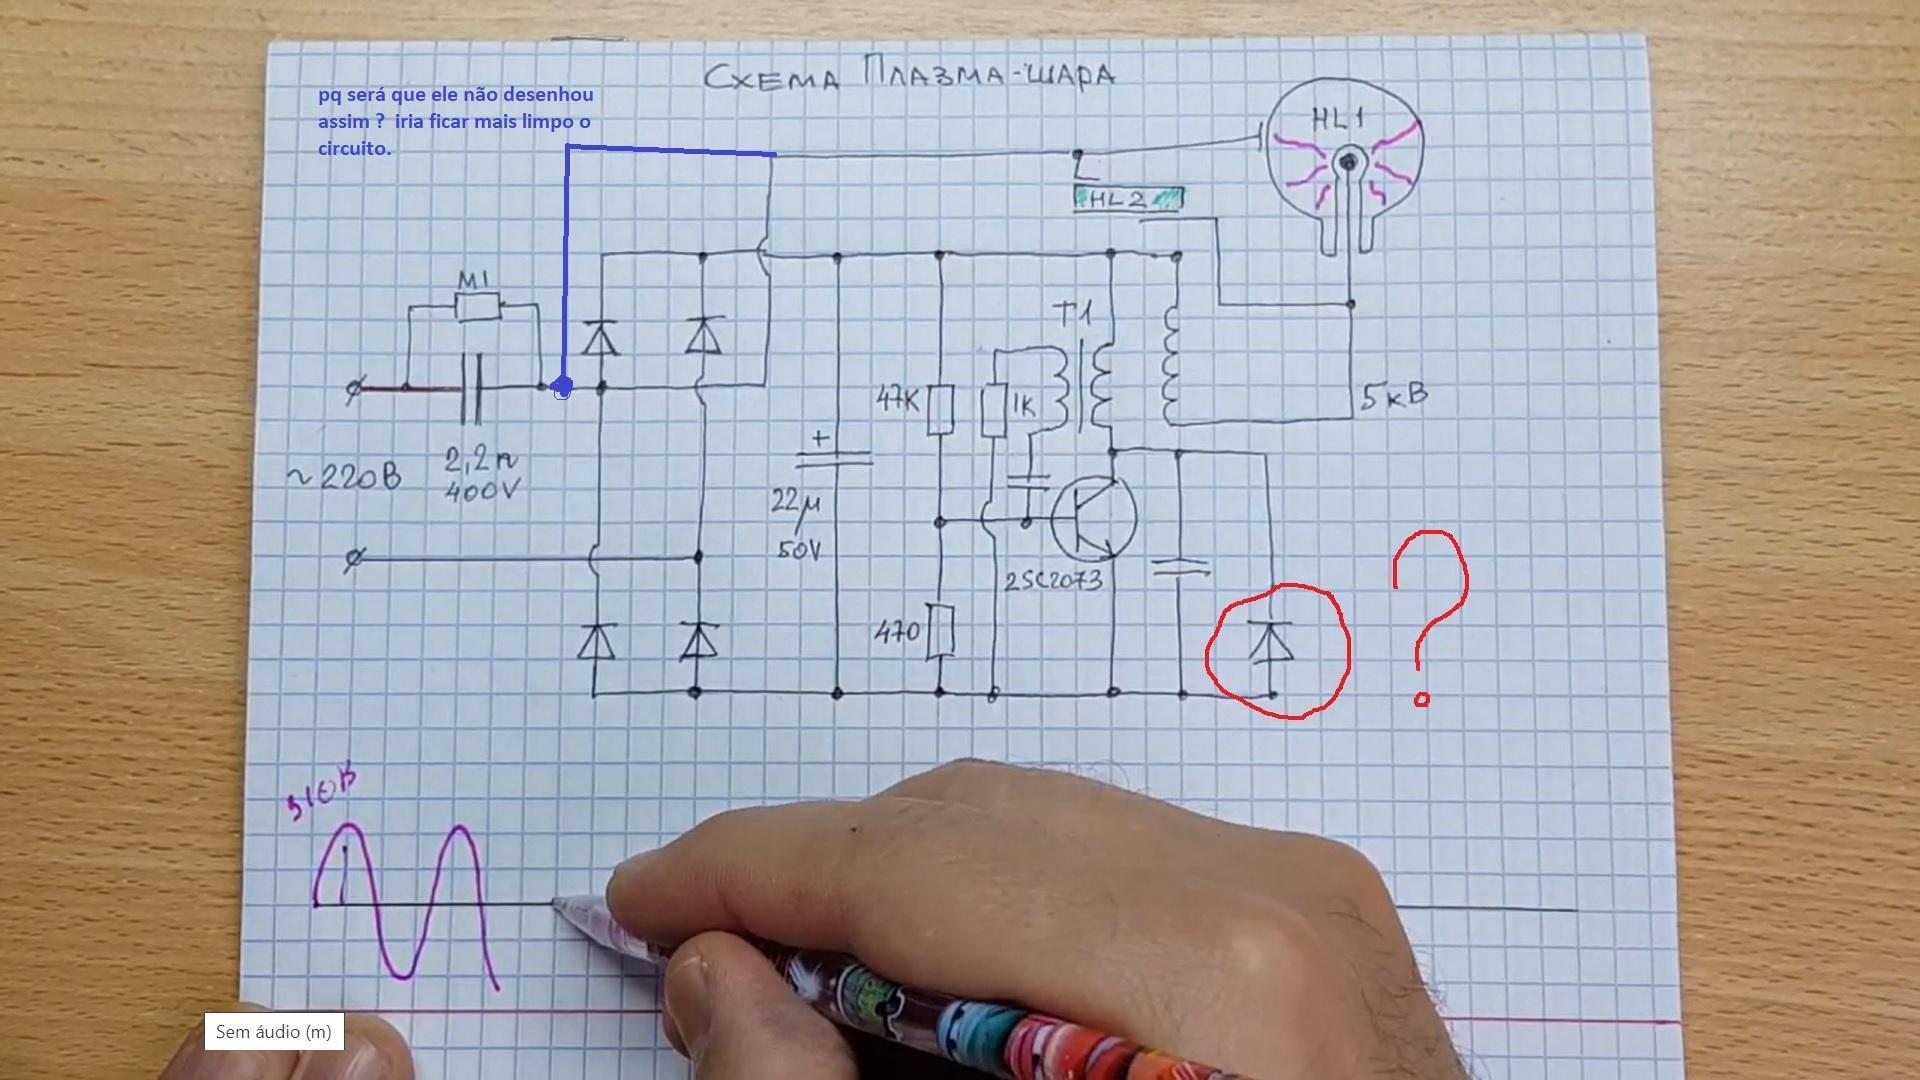 СХЕМА ПЛАЗМА-ШАРА
pq será que ele não desenhou
assim ?  iria ficar mais limpo o
circuito.
HL1
HL2
M1
T1
47K
1K
5кВ
+
2,2n
400V
~220В
22μ
50V
2SC2073
470
?
310В
Sem áudio (m)